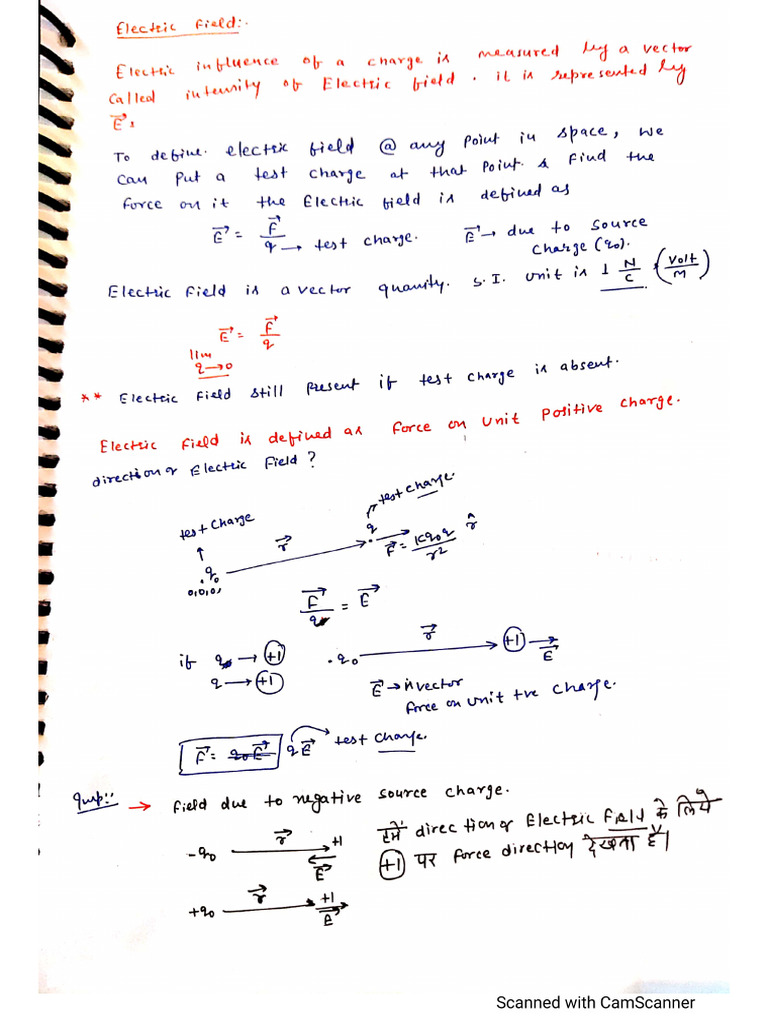 Electric Field:-
Electric influence of a charge is measured by a vector
called intensity of Electric field. it is represented by
E⃗.
To define electric field @ any point in space, we
can put a test charge at that point & find the
force on it the Electric field is defined as
E⃗ = F⃗/q → test charge. E⃗ → due to source charge (q₀).
Electric Field is a vector quanity. S.I. unit is 1 N/C, (Volt/M)
E⃗ = F⃗/q
lim q→0
** Electric Field still present if test charge is absent.
Electric Field is defined as force on unit positive charge.
direction of Electric Field?
test charge
test charge.
q₀
0,0,0,
r⃗
q
F⃗ = Kq₀q/r² r̂
F⃗/q = E⃗
if q → +1
q → +1
.q₀ r⃗ +1 E⃗
E⃗ → is vector
force on unit +ve charge.
F⃗ = q₀E⃗ qE⃗ test charge.
Imp:: → Field due to negative source charge.
-q₀ r⃗ +1
E⃗
+q₀ r⃗ +1
E⃗
हमें direction of Electric Field के लिये
+1 पर force direction देखना है।
Scanned with CamScanner